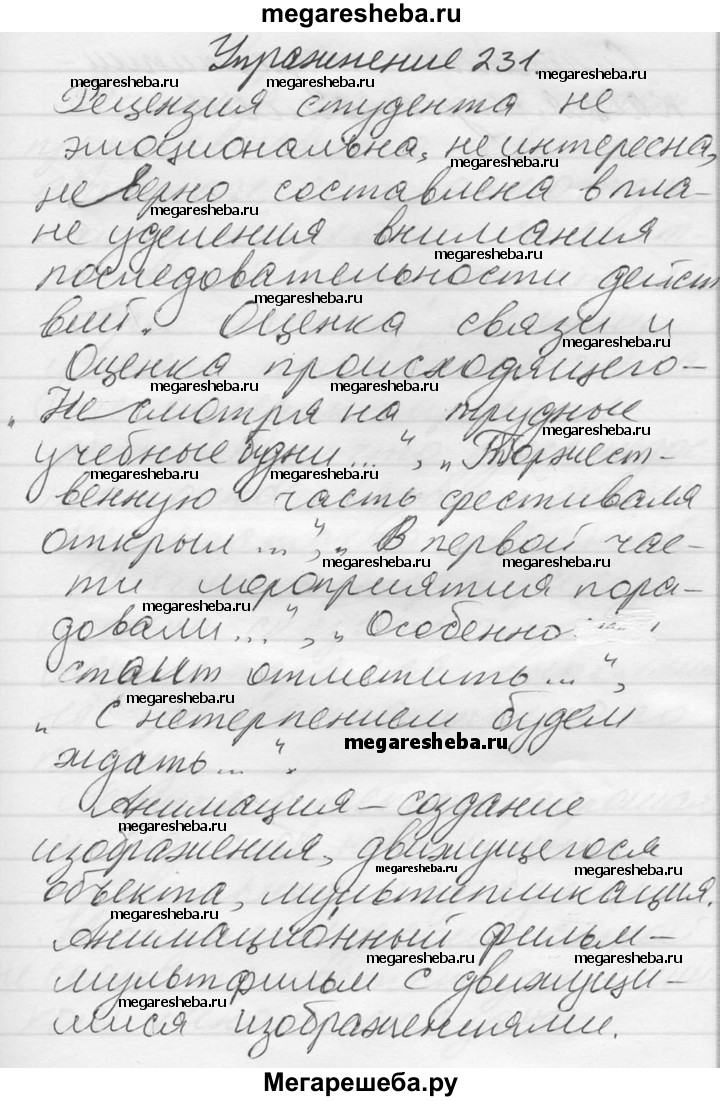 megaresheba.ru
Упражнение 231.
megaresheba.ru megaresheba.ru
Рецензия студента не
эмоциональна, не интересна,
megaresheba.ru
не верно составлена в пла-
megaresheba.ru megaresheba.ru
не уделения внимания
последовательности дейст
megaresheba.ru
вий. Оценка связи и
megaresheba.ru
Оценка происходящего-
megaresheba.ru megaresheba.ru
„Не смотря на трудные
megaresheba.ru
учебные будни...“, „Торжест-
megaresheba.ru
венную часть фестиваля
открыл...“, „В первой час-
megaresheba.ru
ти мероприятия пора-
megaresheba.ru
довали...“, „Особенно
megaresheba.ru
стоит отметить...“,
megaresheba.ru
„С нетерпением будем
ждать...“.
megaresheba.ru
Анимация – создание
megaresheba.ru
изображения, движущегося
megaresheba.ru megaresheba.ru
объекта, мультипликация.
megaresheba.ru
Анимационный фильм –
megaresheba.ru megaresheba.ru
мультфильм с движущи-
megaresheba.ru megaresheba.ru
мися изображениями.
Мегарешеба.ру